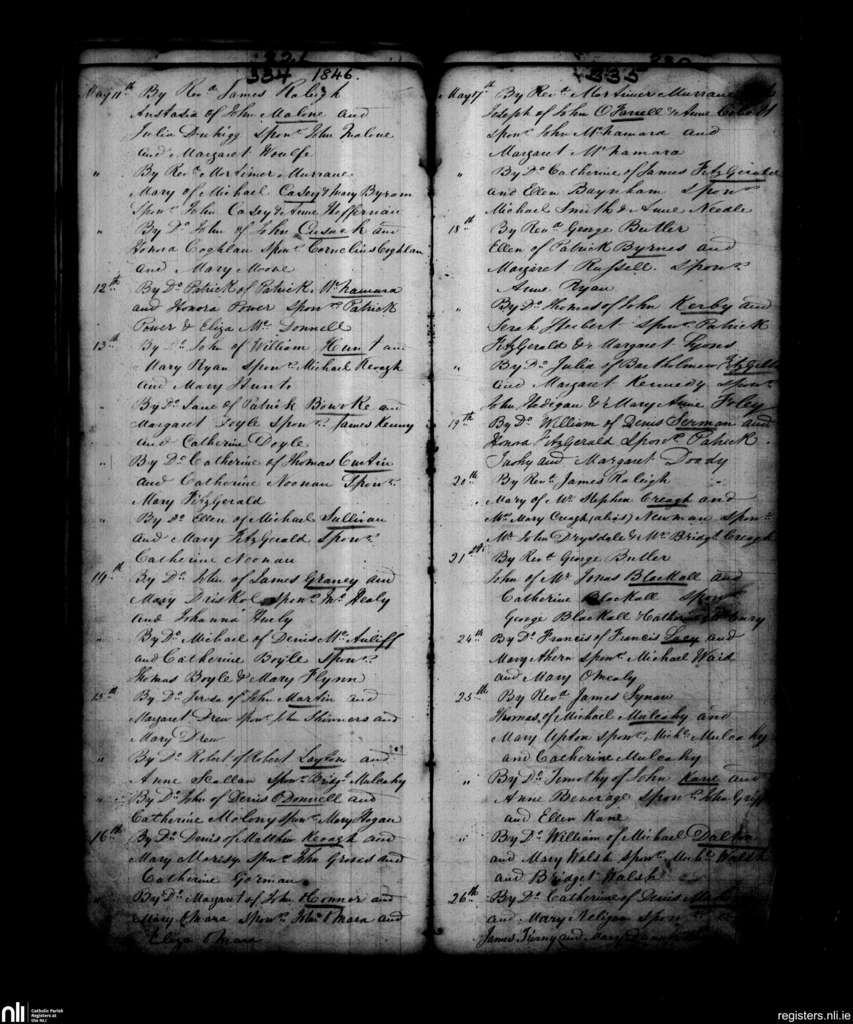 334 1846.
May 11th By Revd. James Raleigh
Anstatia of John Malone and
Julia Duhigg Sponrs. John Malone
and Margaret Woulfe
" By Revd. Mortimer Murrane
Mary of Michael Casey & Mary Byram
Sponrs. John Casey & Anne Heffernan
" By Do. John of John Cusack and
Honora Coghlan Sponrs. Cornelius Coghlan
and Mary Moone
12th By Do. Patrick of Patrick McNamara
and Honora Power Sponrs. Patrick
Power & Eliza Mc. Donnell
13th By Do. John of William Hunt and
Mary Ryan Sponrs. Michael Keough
and Mary Hunt
" By Do. Jane of Patrick Bourke and
Margaret Doyle Sponrs. James Kenny
and Catherine Doyle
" By Do. Catherine of Thomas Curtin
and Catherine Noonan Sponrs.
Mary FitzGerald
" By Do. Ellen of Michael Sullivan
and Mary FitzGerald Sponrs.
Catherine Noonan
14th By Do. John of James Graney and
Mary Driskol Sponrs. Healy
and Johanna
" By Do. Michael of Denis Mc.Auliff
and Catherine Boyle Sponrs.
Thomas Boyle & Mary Flynn
15th By Do. of John Martin and
Margaret Drew Sponrs. John Skinners and
Mary Drew
" By Do. Robert of Robert Layton and
Anne Scallan Sponrs. Bridgt. Mulcahy
" By Do. John of Denis O'Donnell and
Catherine Molony Sponrs. Mary Hogan
16th By Do. Denis of Matthew Keough and
Mary Morisy Sponrs. John and
Catherine Gorman
" By Do. Margaret of John Connor and
Mary OMara Sponrs. John OMara and
Eliza OMara
335
May 17th By Revd. Mortimer Murrane
Joseph of John O'Farrell & Anne
Sponrs. John McNamara and
Margaret McNamara
" By Do. Catherine of James FitzGerald
and Ellen Baynham Sponrs.
Michael Smith & Anne Needle
18th By Revd. George Butler
Ellen of Patrick Byrnes and
Margaret Russell Sponrs.
Anne Ryan
" By Do. Thomas of John Kerby and
Sarah Herbert Sponrs. Patrick
FitzGerald & Margaret Lyons
" By Do. Julia of Bartholmew
and Margaret Kennedy Sponrs.
John Hadigan & Mary Anne Foley
19th By Do. William of Denis and
Honora FitzGerald Sponrs. Patrick
and Margaret Doody
20th By Revd. James Raleigh
Mary of Mr. Stephen Creagh and
Mrs. Mary Creagh (alias) Newman Sponrs.
Mr. John Drysdale & Mrs. Bridgt. Creagh
21st By Revd. George Butler
John of Mr. Jonas Blackall and
Catherine Blackall Sponrs.
George Blackall & Catherine
24th By Do. Francis of Francis Lacy and
Mary Ahern Sponrs. Michael Ward
and Mary Omealy
25th By Revd. James Synan
Thomas of Michael Mulcahy and
Mary Upton Sponrs. Michl. Mulcahy
and Catherine Mulcahy
" By Do. Timothy of John Kane and
Anne Beverage Sponrs. John
and Ellen Kane
" By Do. William of Michael Dalton
and Mary Walsh Sponrs. Michl. Walsh
and Bridget Walsh
26th By Do. Catherine of Denis
and Mary Neligan Sponrs.
James Tierny and Mary
nli
Catholic Parish
Registers at
the NLI
registers.nli.ie